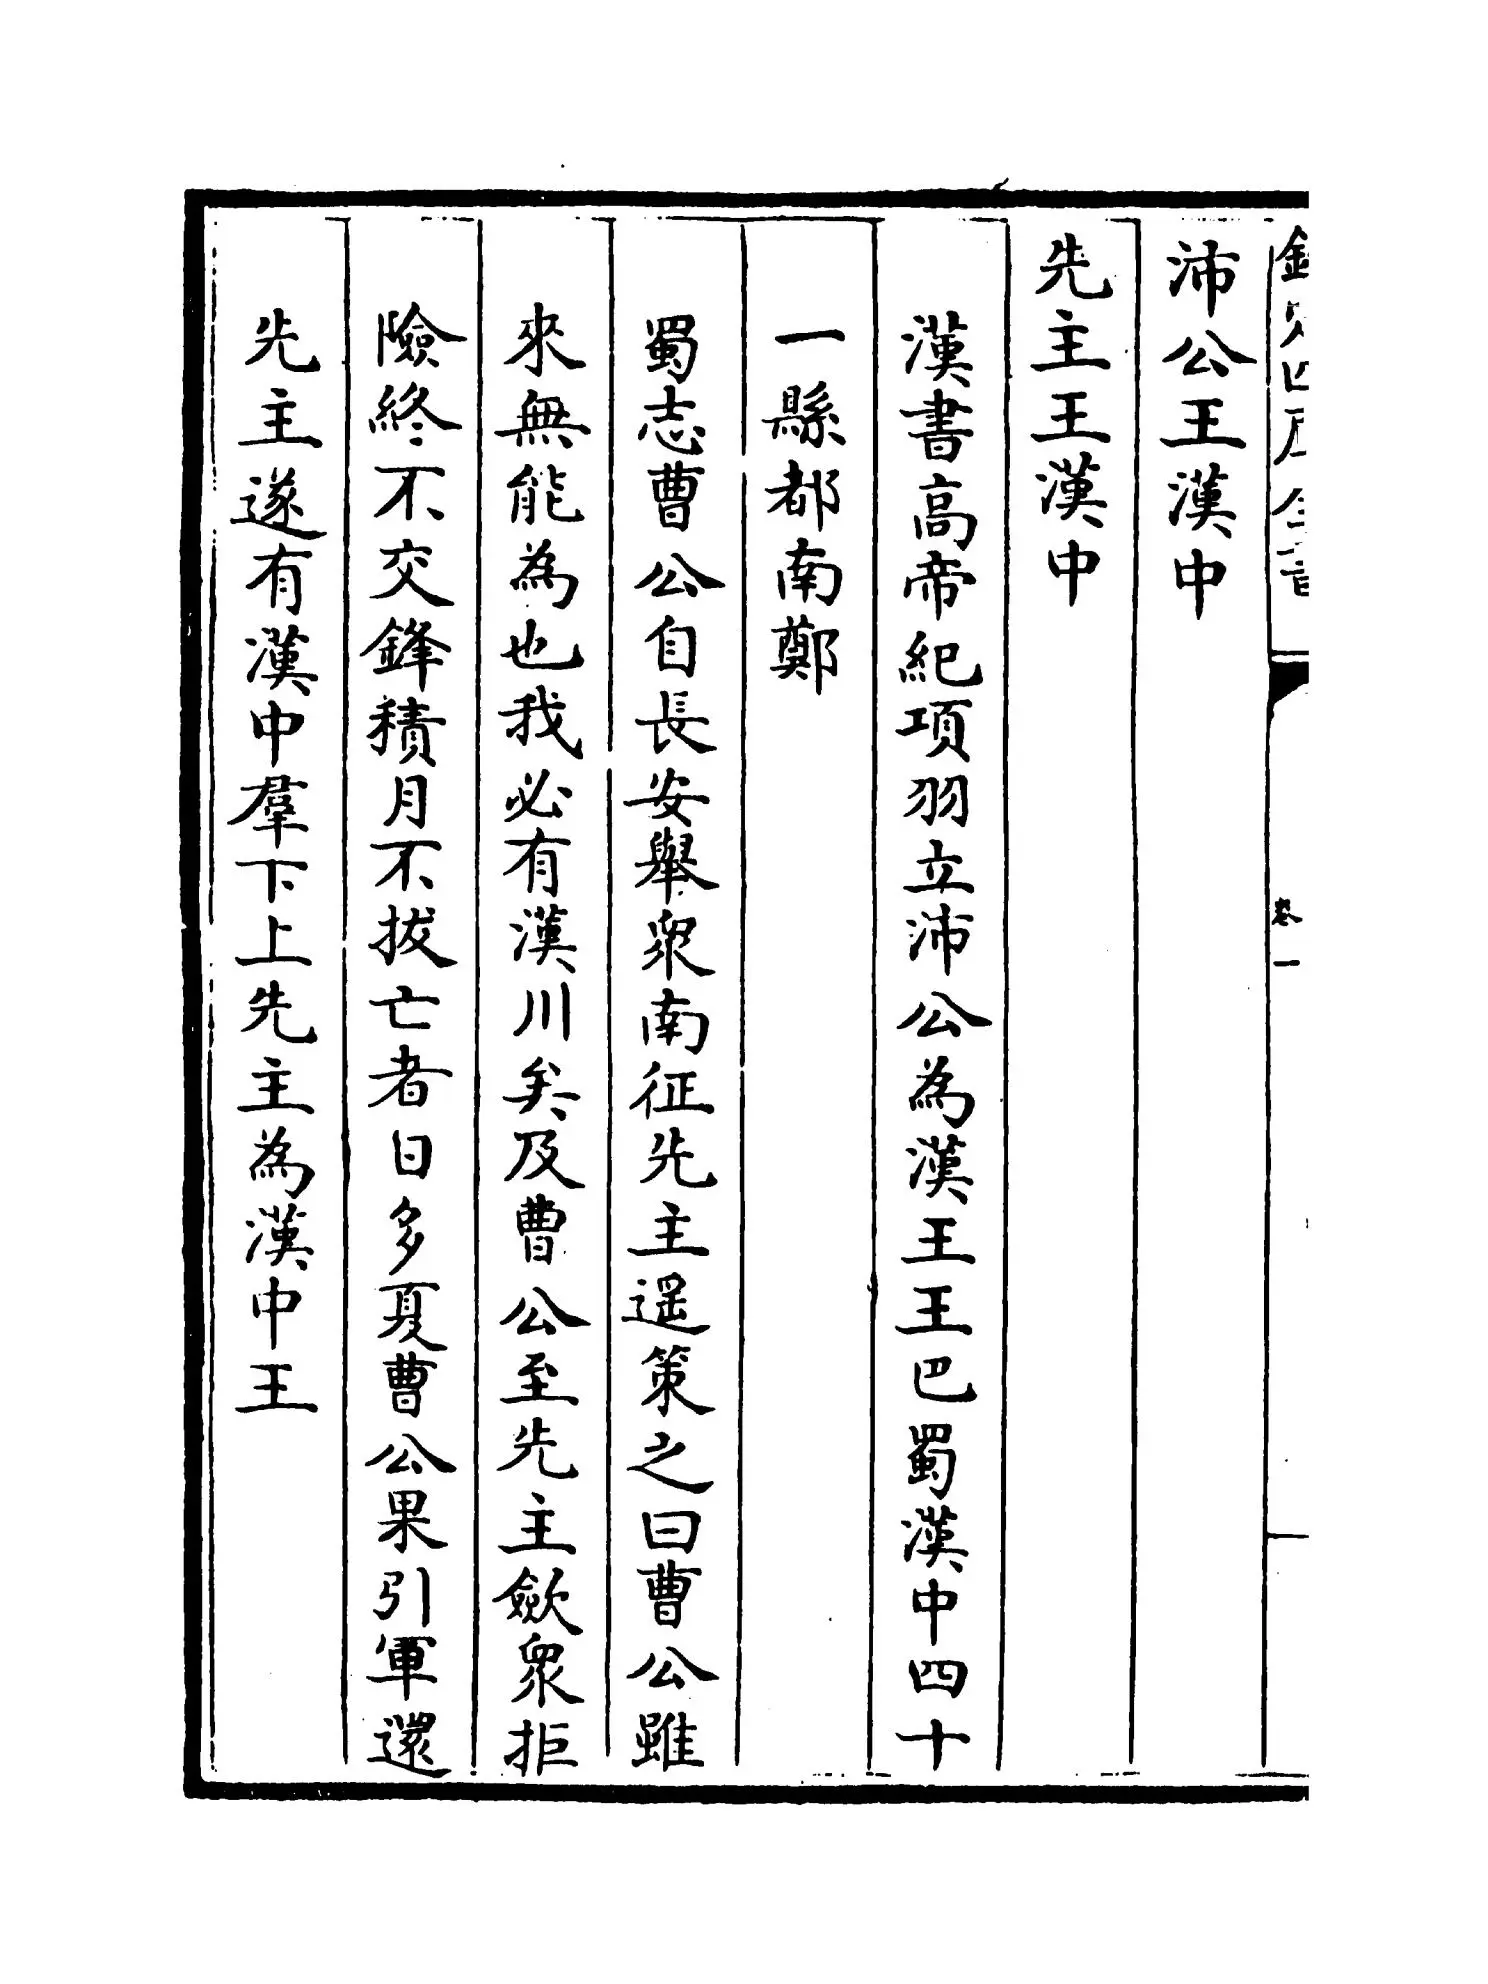 沛公王漢中
先主王漢中
漢書高帝紀項羽立沛公為漢王王巴蜀漢中四十
一縣都南鄭
蜀志曹公自長安舉衆南征先主遥策之曰曹公雖
來無能為也我必有漢川矣及曹公至先主歛衆拒
險終不交鋒積月不拔亡者日多夏曹公果引軍還
先主遂有漢中羣下上先主為漢中王
卷一